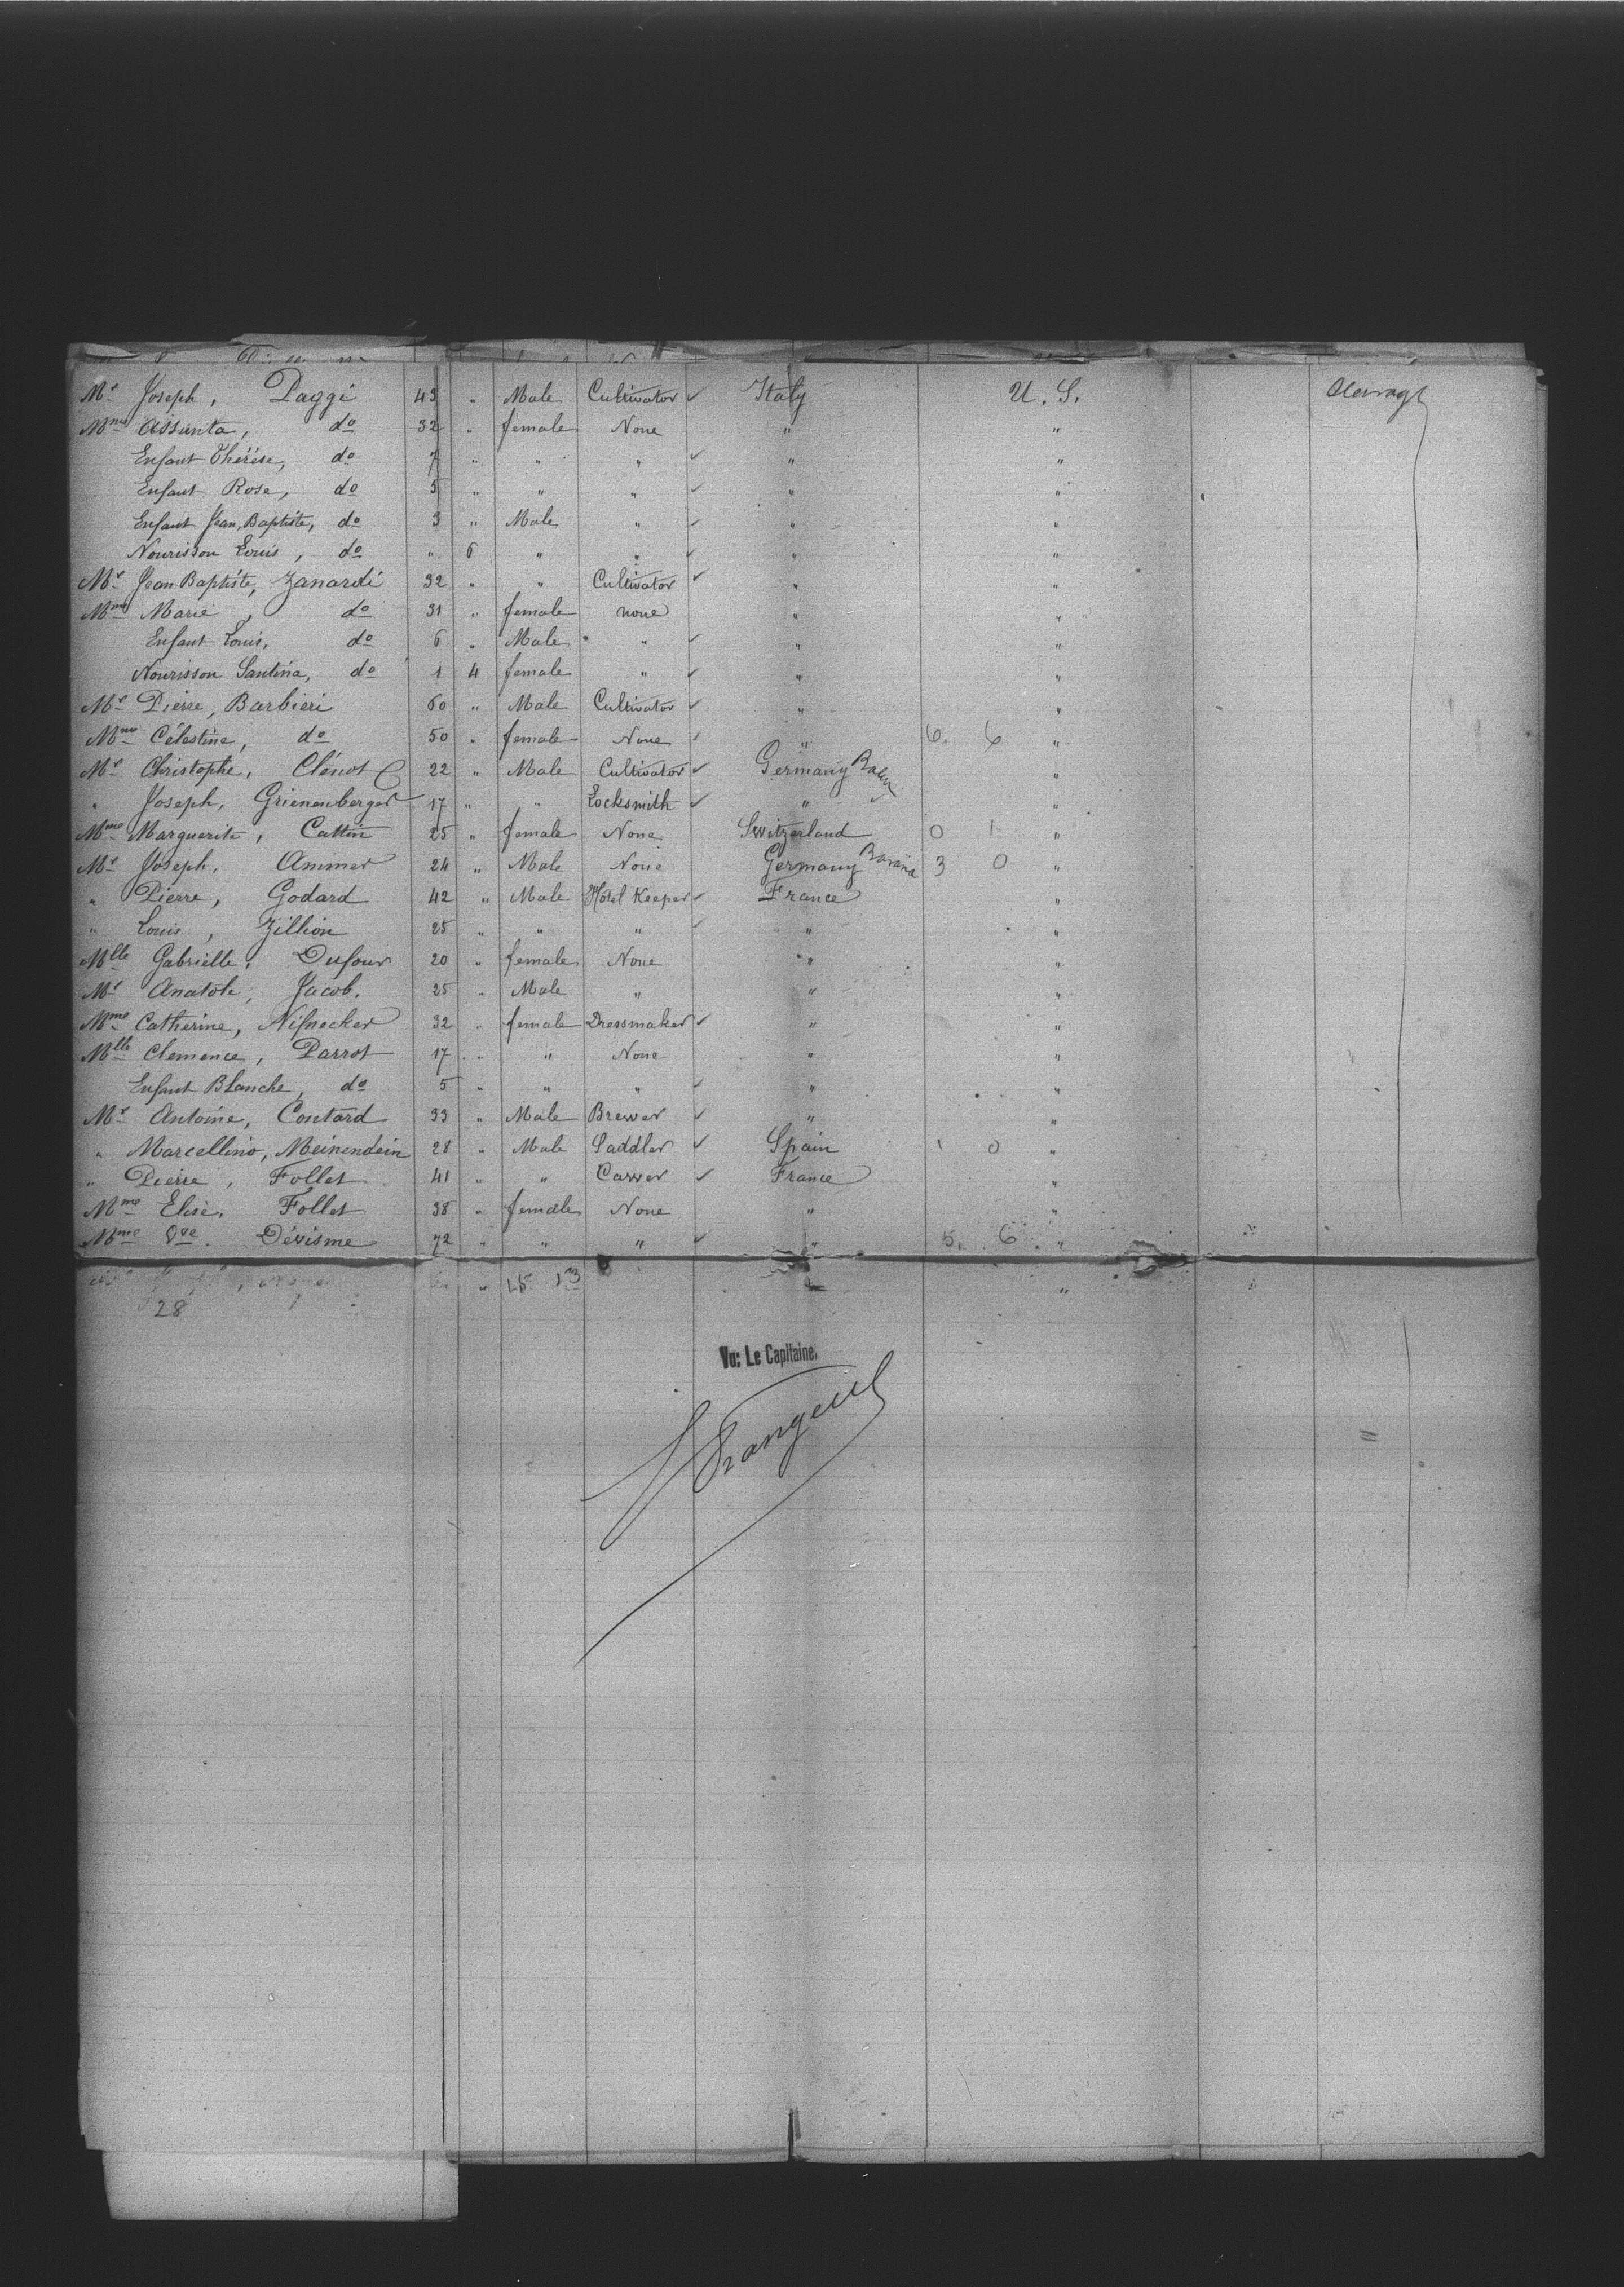 Mr Joseph, Paggi 43 " Male Cultivator ✓ Italy U. S. Steerage
Mme Assunta, do 32 " female None " "
Enfant Thérèse, do 7 " " " ✓ " "
Enfant Rose, do 5 " " " ✓ " "
Enfant Jean, Baptiste, do 3 " Male " ✓ " "
Nourisson Louis, do " 6 " " ✓ " "
Mr Jean Baptiste, Zanardi 32 " " Cultivator ✓ " "
Mme Marie, do 31 " female none " "
Enfant Louis, do 6 " Male " ✓ " "
Nourisson Santina, do 1 4 female " ✓ " "
Mr Pierre, Barbieri 60 " Male Cultivator ✓ " "
Mme Célestine, do 50 " female None ✓ " 6. 6 "
Mr Christophe, Clénot 22 " Male Cultivator ✓ Germany "
" Joseph, Grienenberger 17 " " Locksmith ✓ " "
Mme Marguerite, Cattin 25 " female None Switzerland 0 1 "
Mr Joseph, Ammer 24 " Male None Germany Bavaria 3 0 "
" Pierre, Godard 42 " Male Hôtel Keeper ✓ France "
" Louis, Zillion 25 " " " ✓ " "
Mlle Gabrielle, Dufour 20 " female None " "
Mr Anatole, Jacob. 25 " Male " " "
Mme Catherine, 32 " female Dressmaker ✓ " "
Mlle Clemence, Parrot 17 " " None " "
Enfant Blanche, do 5 " " " ✓ " "
Mr Antoine, Contard 33 " Male Brewer ✓ " "
" Marcellino, Meinendein 28 " Male Saddler ✓ Spain 1 0 "
" Pierre, Follet 41 " " Carver ✓ France "
Mme Elise, Follet 38 " female None " "
Mme Vve. Dévisme 72 " " " ✓ " 5. 6. "
" 15 13 "
28
Vu: Le Capitaine,